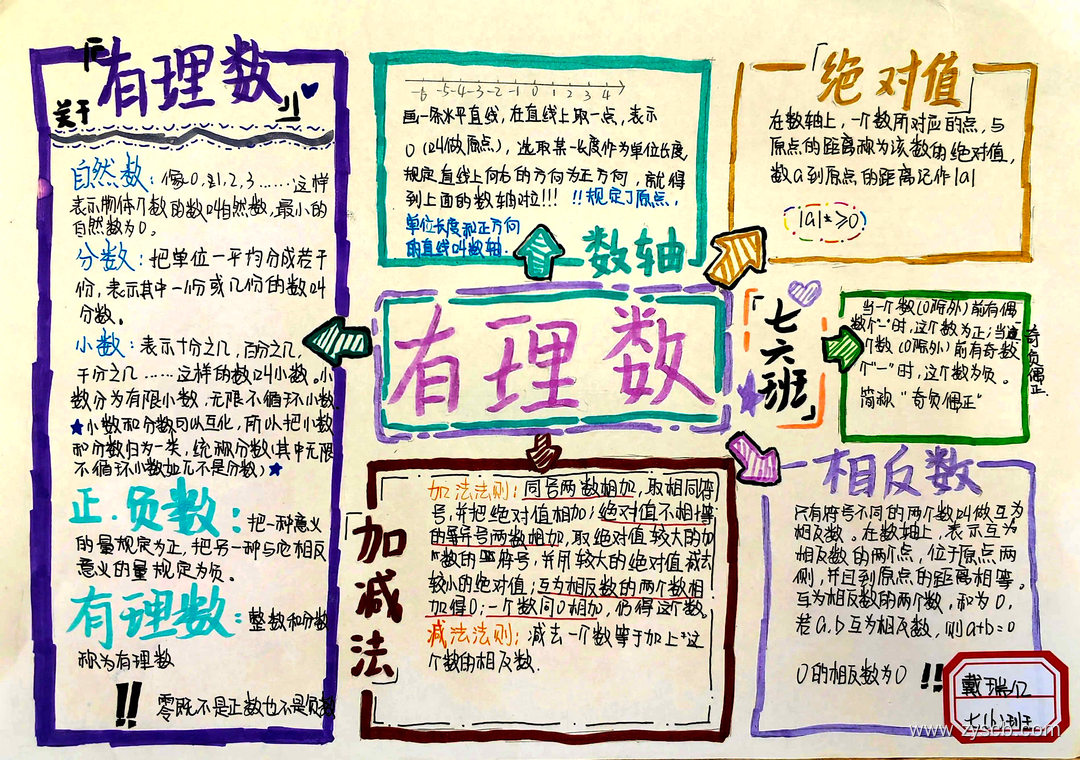 关于
「有理数」
自然数：像0,1,2,3……这样
表示物体个数的数叫自然数，最小的
自然数为0。
分数：把单位一平均分成若干
份，表示其中一份或几份的数叫
分数。
小数：表示十份之几，百分之几，
千分之几……这样的数叫小数。小
数分为有限小数，无限不循环小数
★小数和分数可以互化，所以把小数
和分数归为一类，统称分数(其中无限
不循环小数如π不是分数)★
正.负数：把一种意义
的量规定为正，把另一种与它相反
意义的量规定为负。
有理数：整数和分数
称为有理数
!! 零既不是正数也不是负数
-6 -5 -4 -3 -2 -1 0 1 2 3 4
画一条水平直线，在直线上取一点，表示
0（叫做原点），选取某一长度作为单位长度，
规定直线上向右的方向为正方向，就得
到上面的数轴对位!!! !!规定了原点，
单位长度和正方向
的直线叫数轴.
数轴
「绝对值」
在数轴上，一个数所对应的点，与
原点的距离称为该数的绝对值，
数a到原点的距离记作|a|
|a|≥0
有理数
「七六班」
当一个数(0除外)前有偶
数个"-"时，这个数为正；当这
个数(0除外)前有奇数
个"-"时，这个数为负。
简称"奇负偶正"
奇负偶正.
「加减法」
加法法则：同号两数相加，取相同符
号，并把绝对值相加；绝对值不相等
的异号两数相加，取绝对值较大的加
数的符号，并用较大的绝对值减去
较小的绝对值；互为相反数的两个数相
加得0；一个数同0相加，仍得这个数。
减法法则：减去一个数等于加上这
个数的相反数.
相反数
只有符号不同的两个数叫做互为
相反数。在数轴上，表示互为
相反数的两个点，位于原点两
侧，并且到原点的距离相等。
互为相反数的两个数，和为0，
若a.b互为相反数，则a+b=0
0的相反数为0 !!
戴瑞
七(6)班
www.zyscb.com